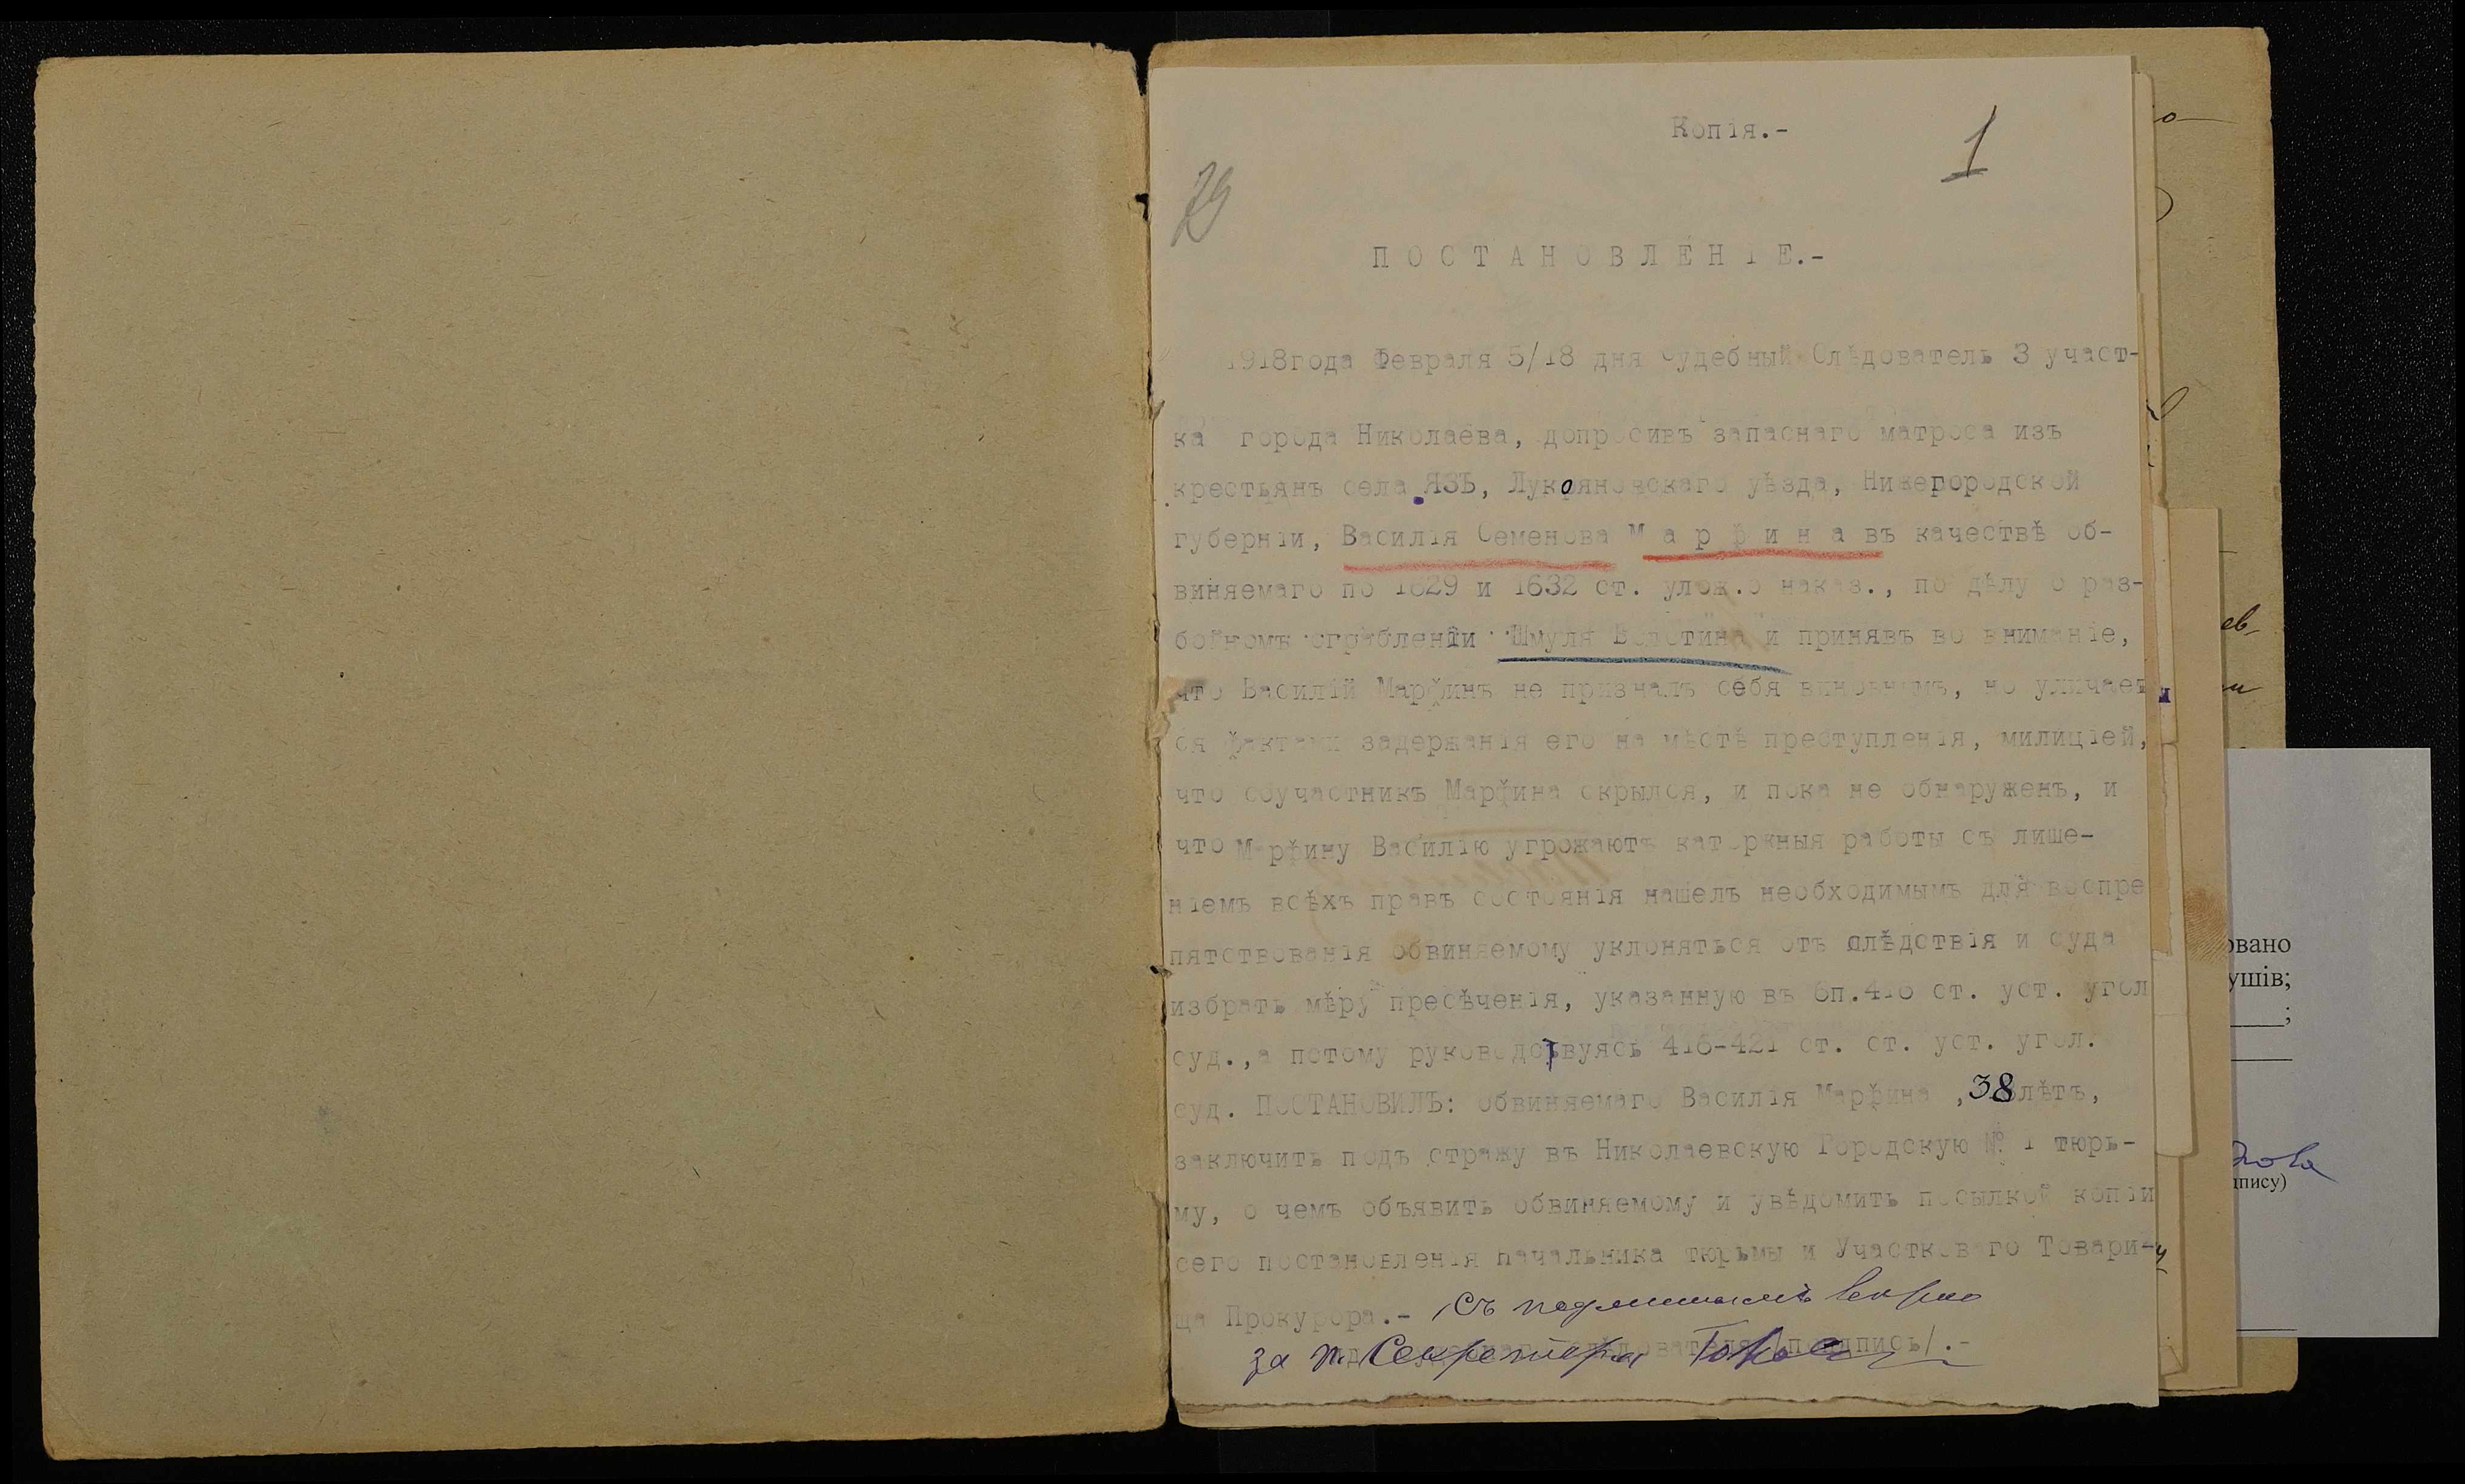 Копія.-
1
29
ПОСТАНОВЛЕНІЕ.-
1918года Февраля 5/18 дня Судебный Слѣдователь 3 участ-
ка города Николаева, допросивъ запаснаго матроса изъ
крестьянъ села ЯЗЪ, Лукояновскаго уѣзда, Нижегородской
губерніи, Василія Семенова Марфина въ качествѣ об-
виняемаго по 1629 и 1632 ст. улож.о наказ., по дѣлу о раз-
бойномъ ограбленіи Шмуля Болотина и принявъ во вниманіе,
что Василій Марфинъ не призналъ себя виновнымъ, но уличает
ся фактами задержанія его на мѣстѣ преступленія, милиціей,
что соучастникъ Марфина скрылся, и пока не обнаруженъ, и
что Марфину Василію угрожаютъ каторжныя работы съ лише-
ніемъ всѣхъ правъ состоянія нашелъ необходимымъ для воспре
пятствованія обвиняемому уклоняться отъ слѣдствія и суда
избрать мѣру пресѣченія, указанную въ 6п.416 ст. уст. угол
суд.,а потому руководствуясь 416-421 ст. ст. уст. угол.
суд. ПОСТАНОВИЛЪ: обвиняемаго Василія Марфина ,38лѣтъ,
заключить подъ стражу въ Николаевскую Городскую № 1 тюрь-
му, о чемъ объявить обвиняемому и увѣдомить посылкой копіи
сего постановленія начальника тюрьмы и Участковаго Товари-
ща Прокурора.- Съ подлиннымъ вѣрно
за Секретаря /подпись/.-
овано
ушів;
;
дпису)